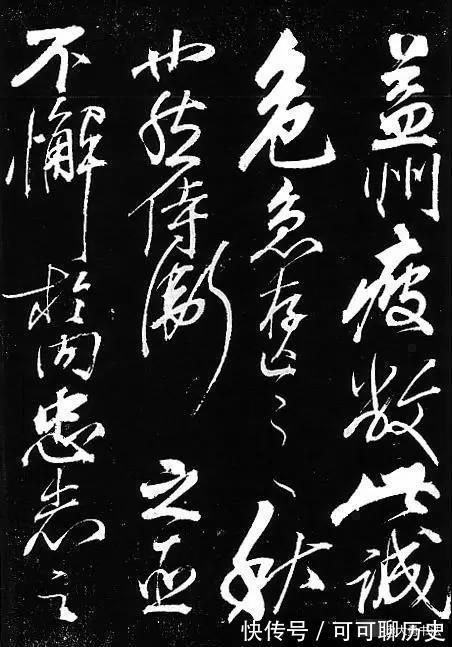 益州疲敝此誠
危急存亡之秋
也然侍衛之臣
不懈於内忠志之
快传号 / 可可聊历史